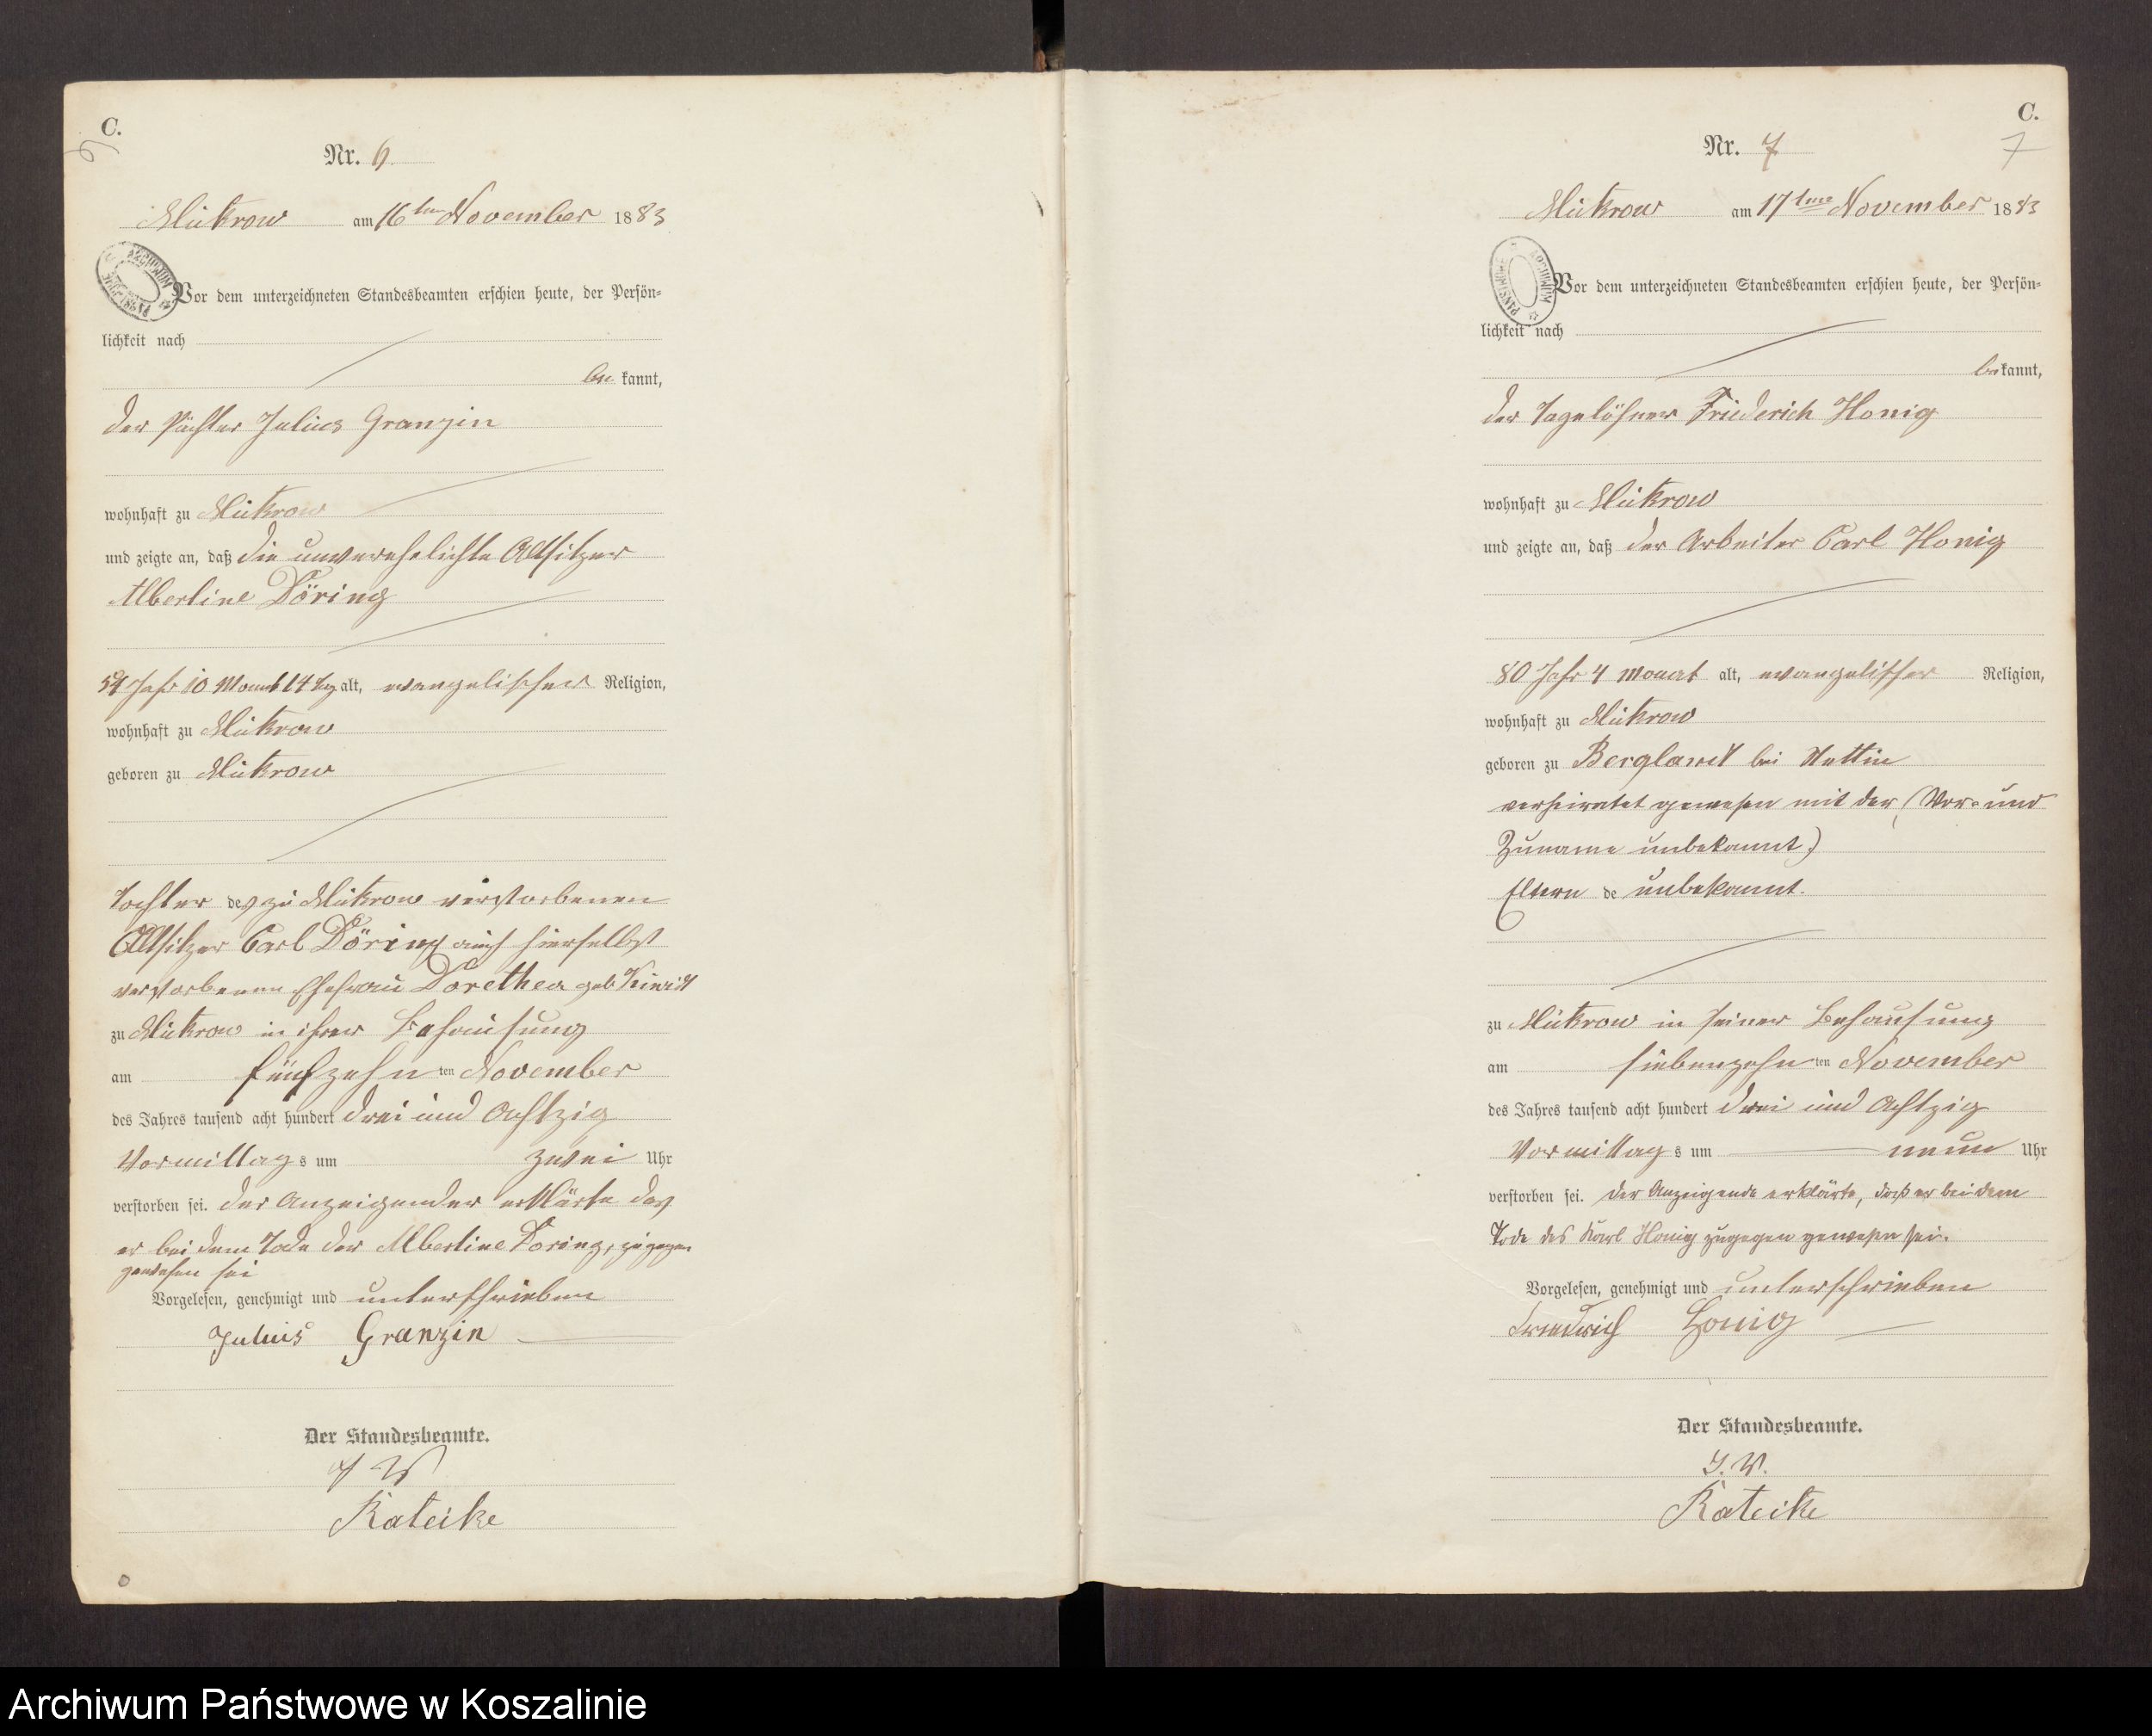 C.
6
Nr. 6.
Mückrow am 16ten November 1883
ARCHIWUM PAŃSTWOWE
Vor dem unterzeichneten Standesbeamten erschien heute, der Persön=
lichkeit nach
be kannt,
der Pächter Julius Granzin
wohnhaft zu Mückrow
und zeigte an, daß die unverehelichte Altsitzer
Albertine Döring
54 Jahr 10 Monat 14 Tg alt, evangelischer Religion,
wohnhaft zu Mückrow
geboren zu Mückrow
Tochter des zu Mückrow verstorbenen
Altsitzer Carl Döring auch hierselbst
verstorbenen Ehefrau Dorethea geb
zu Mückrow in ihrer Behausung
am fünfzehn ten November
des Jahres tausend acht hundert drei und Achtzig
Vormittag s um zwei Uhr
verstorben sei. der Anzeigender erklärte das
er bei dem Tode der Albertine Döring, zugegen
gewesen sei
Vorgelesen, genehmigt und unterschrieben
Julius Granzin
Der Standesbeamte.
J W
Rateike
C.
7
Nr. 7
Mückrow am 17ten November 1883
ARCHIWUM PAŃSTWOWE
Vor dem unterzeichneten Standesbeamten erschien heute, der Persön=
lichkeit nach
be kannt,
der Tagelöhner Friederich Honig
wohnhaft zu Mückrow
und zeigte an, daß der Arbeiter Carl Honig
80 Jahr 4 Monat alt, evangelischer Religion,
wohnhaft zu Mückrow
geboren zu Bergland bei Stettin
verheiratet gewesen mit der (Vor- und
Zuname unbekannt)
Eltern de unbekannt.
zu Mückrow in seiner Behausung
am siebenzehn ten November
des Jahres tausend acht hundert drei und Achtzig
Vormittag s um neun Uhr
verstorben sei. Der Anzeigende erklärte, daß er bei dem
Tode des Karl Honig zugegen gewesen sei.
Vorgelesen, genehmigt und unterschrieben
Friedrich Honig
Der Standesbeamte.
J. W.
Rateike
Archiwum Państwowe w Koszalinie